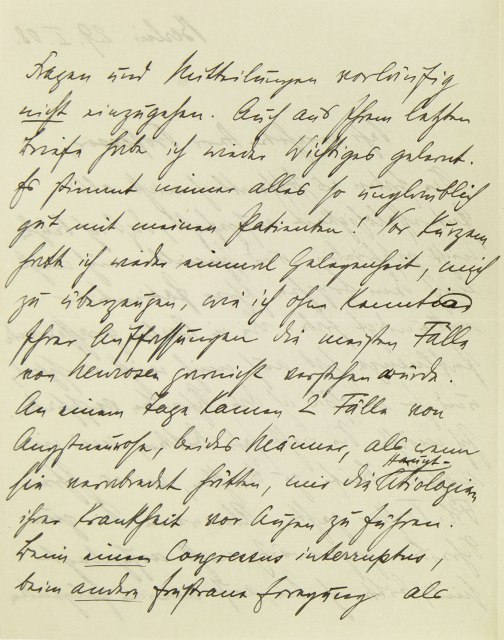 Fragen und Mitteilungen vorläufig
nicht einzugehen. Auch aus Ihrem letzten
Briefe habe ich wieder Wichtiges gelernt.
Es stimmt immer alles so unglaublich
gut mit meinen Patienten! Vor Kurzem
hatte ich wieder einmal Gelegenheit, mich
zu überzeugen, wie ich ohne Kenntnis
Ihrer Auffassungen die meisten Fälle
von Neurosen garnicht verstehen würde.
An einem Tage kamen 2 Fälle von
Angstneurose, beides Männer, als wenn
sie verabredet hätten, mir die Haupt-Ätiologien
ihrer Krankheit vor Augen zu führen.
Beim einen Congressus interruptus,
beim andern frustrane Erregung als